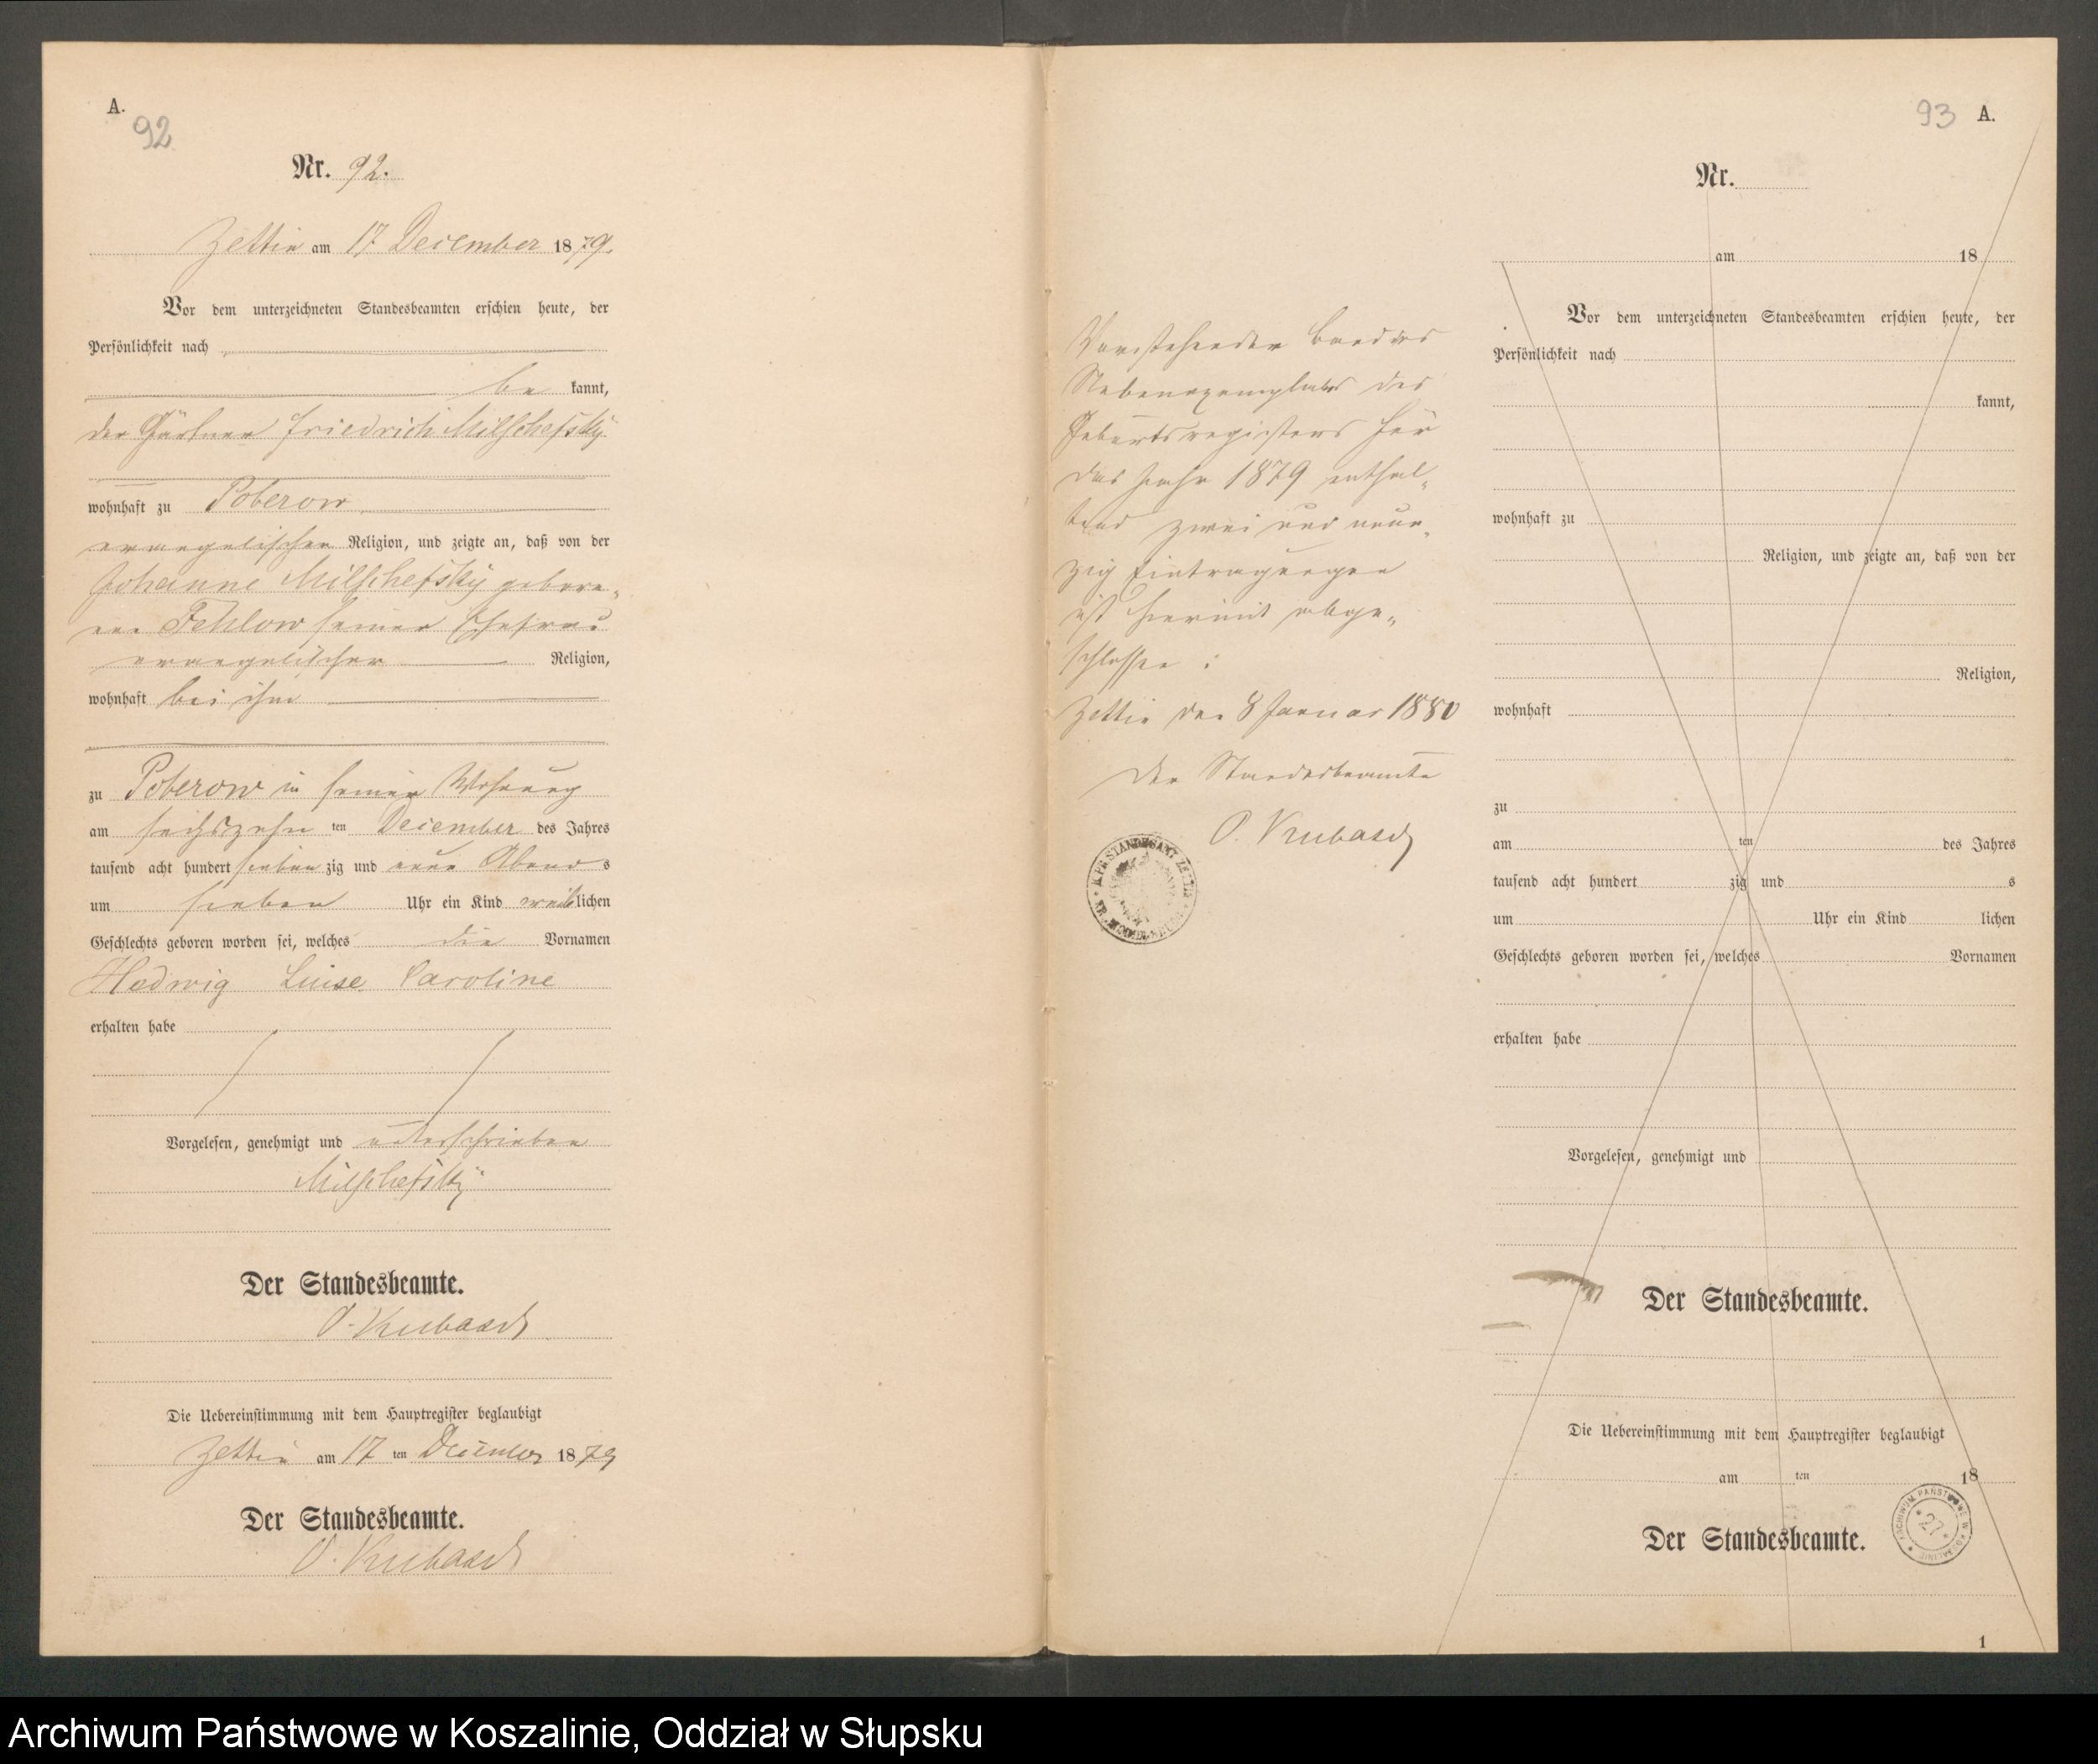 A.
92
Nr. 92.
Zettin am 17 December 1879.
Vor dem unterzeichneten Standesbeamten erschien heute, der
Persönlichkeit nach
be kannt,
der Gärtner Friedrich Milschefsky
wohnhaft zu Poberow
evangelischen Religion, und zeigte an, daß von der
Johanne Milschefsky gebore-
nen Fehlow seiner Ehefrau
evangelischer Religion,
wohnhaft bei ihm
zu Poberow in seiner Wohnung
am sechszehn ten December des Jahres
tausend acht hundert sieben zig und neun Abend s
um sieben Uhr ein Kind weib lichen
Geschlechts geboren worden sei, welches die Vornamen
Hedwig Luise Caroline
erhalten habe
Vorgelesen, genehmigt und unterschrieben
Milschefsky
Der Standesbeamte.
O. Krubasch
Die Uebereinstimmung mit dem Hauptregister beglaubigt
Zettin am 17 ten December 1879
Der Standesbeamte.
O. Krubasch
Vorstehender Band des
Nebenexemplars des
Geburtsregisters für
das Jahr 1879 enthal-
tend zwei und neun-
zig Eintragungen
ist hiermit abge-
schlossen:
Zettin den 8 Januar 1880
Der Standesbeamte
O. Krubasch
93 A.
Nr.
am 18
Vor dem unterzeichneten Standesbeamten erschien heute, der
Persönlichkeit nach
kannt,
wohnhaft zu
Religion, und zeigte an, daß von der
Religion,
wohnhaft
zu
am ten des Jahres
tausend acht hundert zig und s
um Uhr ein Kind lichen
Geschlechts geboren worden sei, welches Vornamen
erhalten habe
Vorgelesen, genehmigt und
Der Standesbeamte.
Die Uebereinstimmung mit dem Hauptregister beglaubigt
am ten 18
Der Standesbeamte.
ARCHIWUM PAŃSTWOWE W KOSZALINIE
27
1
Archiwum Państwowe w Koszalinie, Oddział w Słupsku